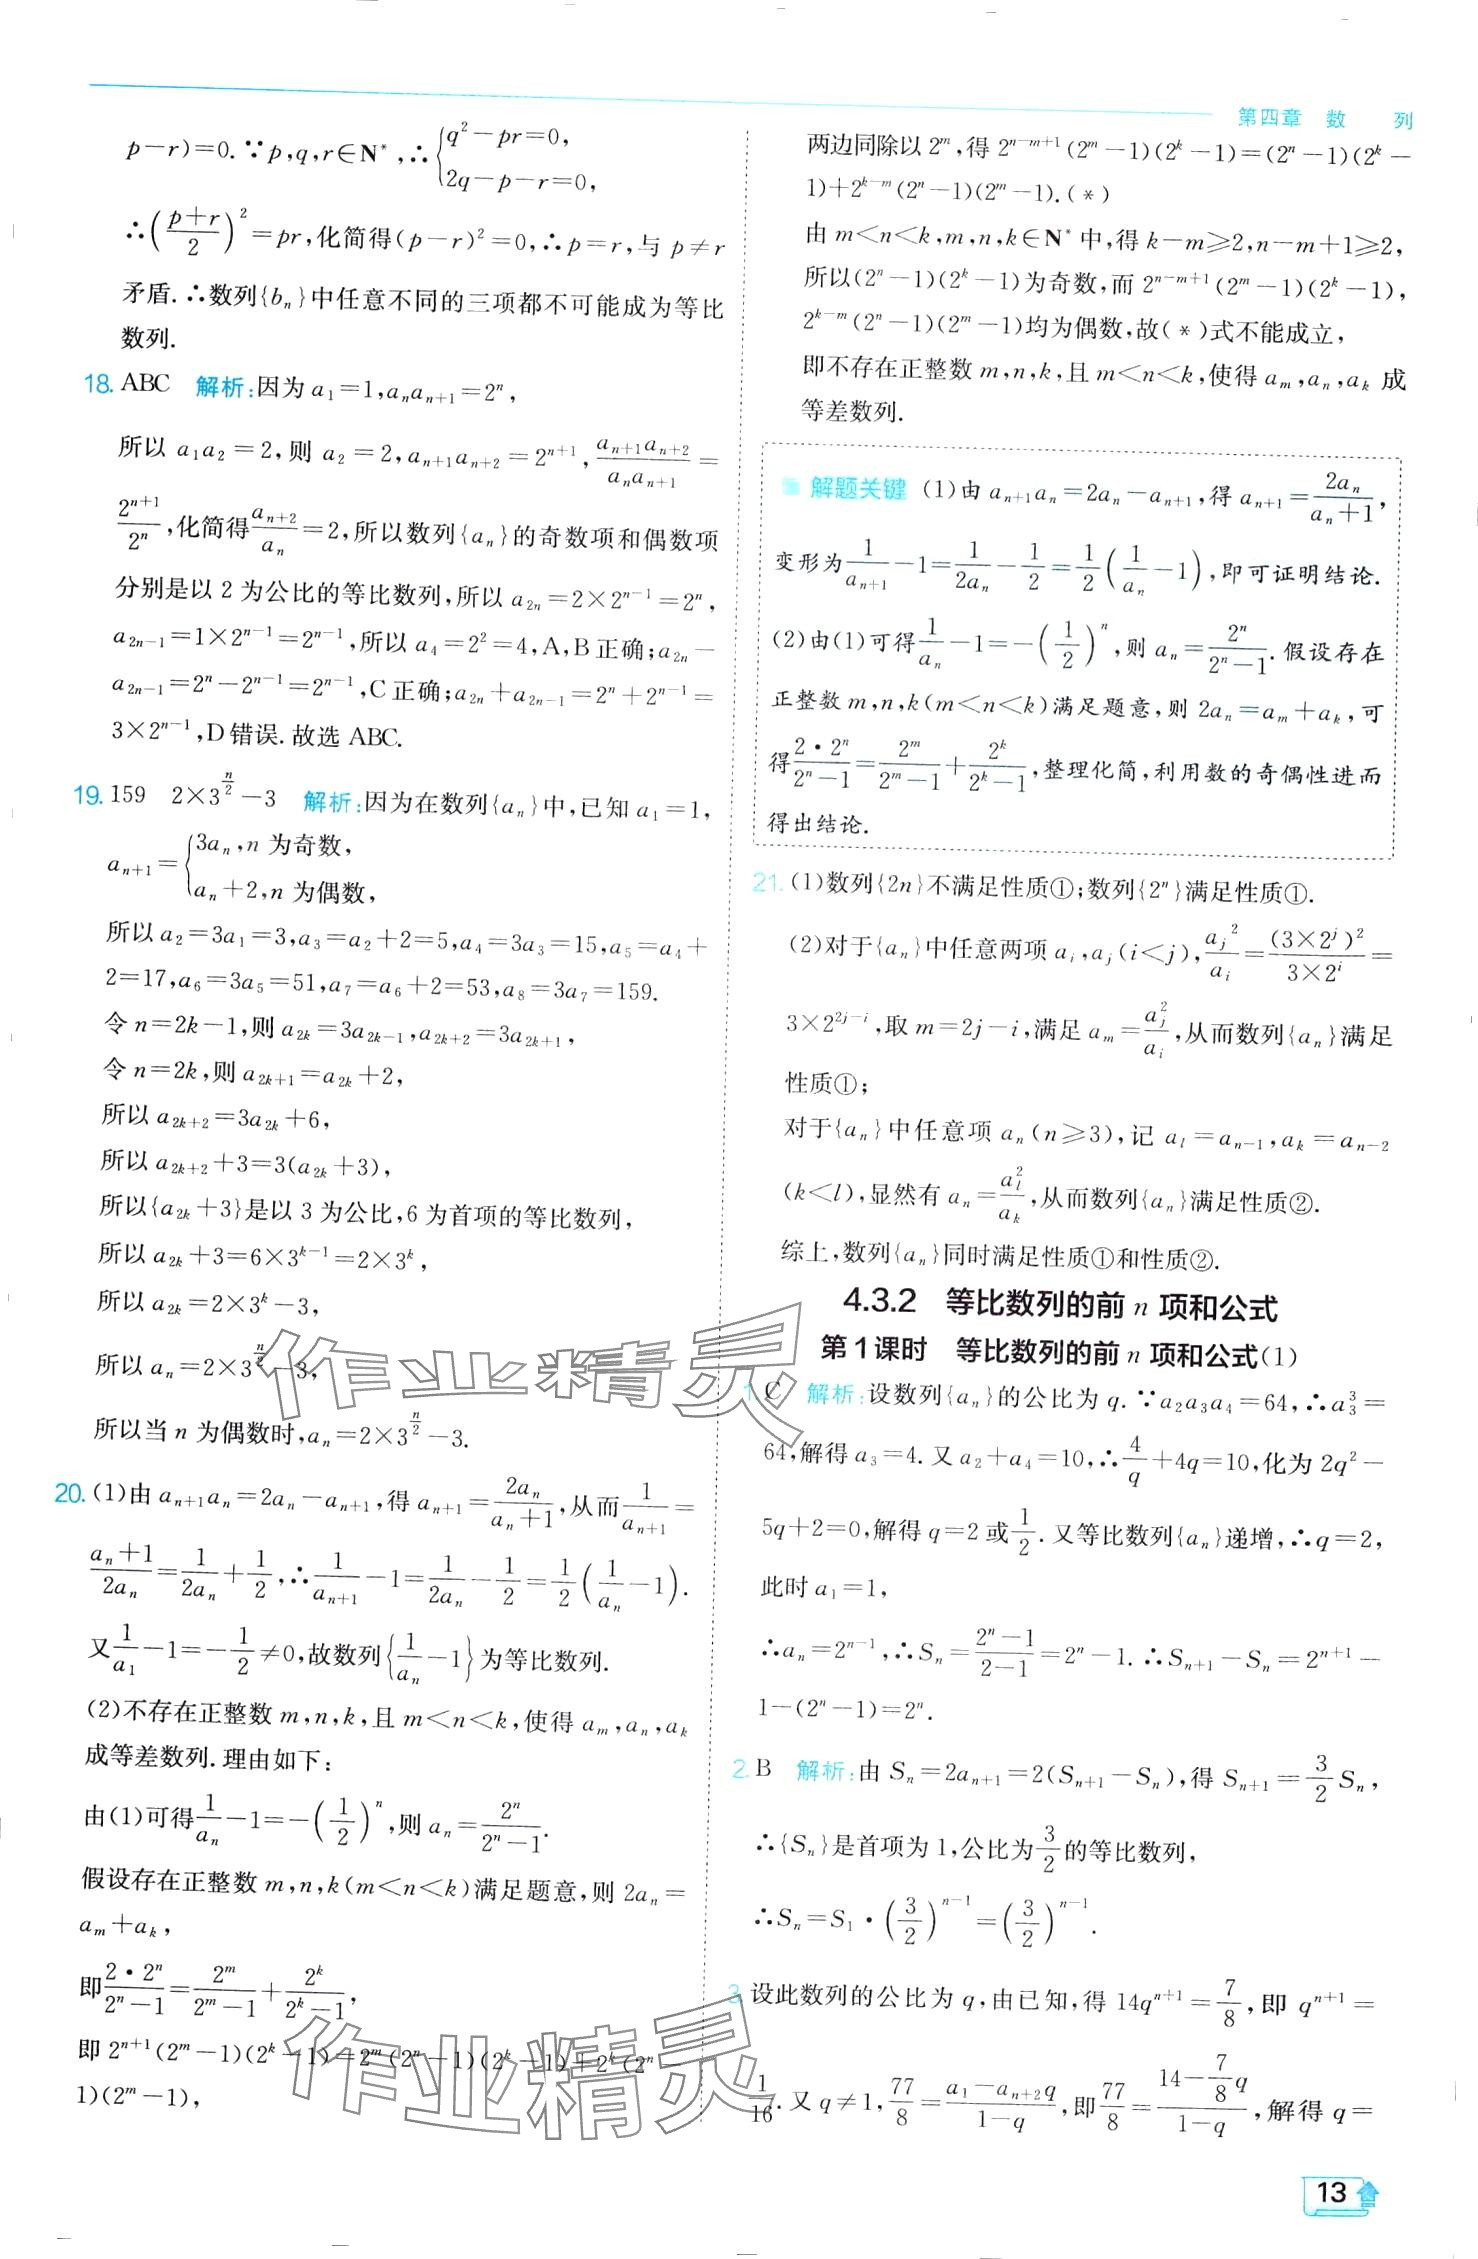 第四章 数 列
p－r)＝0.∵p,q,r∈N*,∴{q²－pr＝0,
2q－p－r＝0,
∴((p＋r)/2)²＝pr,化简得(p－r)²＝0,∴p＝r,与 p≠r
矛盾.∴数列{bₙ}中任意不同的三项都不可能成为等比
数列.
18. ABC 解析:因为 a₁＝1,aₙaₙ₊₁＝2ⁿ,
所以 a₁a₂＝2,则 a₂＝2,aₙ₊₁aₙ₊₂＝2ⁿ⁺¹,(aₙ₊₁aₙ₊₂)/(aₙaₙ₊₁)＝
2ⁿ⁺¹/2ⁿ,化简得aₙ₊₂/aₙ＝2,所以数列{aₙ}的奇数项和偶数项
分别是以 2 为公比的等比数列,所以 a₂ₙ＝2×2ⁿ⁻¹＝2ⁿ,
a₂ₙ₋₁＝1×2ⁿ⁻¹＝2ⁿ⁻¹,所以 a₄＝2²＝4,A,B 正确;a₂ₙ－
a₂ₙ₋₁＝2ⁿ－2ⁿ⁻¹＝2ⁿ⁻¹,C 正确;a₂ₙ＋a₂ₙ₋₁＝2ⁿ＋2ⁿ⁻¹＝
3×2ⁿ⁻¹,D 错误.故选 ABC.
19. 159 2×3^(n/2)－3 解析:因为在数列{aₙ}中,已知 a₁＝1,
aₙ₊₁＝{3aₙ,n 为奇数,
aₙ＋2,n 为偶数,
所以 a₂＝3a₁＝3,a₃＝a₂＋2＝5,a₄＝3a₃＝15,a₅＝a₄＋
2＝17,a₆＝3a₅＝51,a₇＝a₆＋2＝53,a₈＝3a₇＝159.
令 n＝2k－1,则 a₂ₖ＝3a₂ₖ₋₁,a₂ₖ₊₂＝3a₂ₖ₊₁,
令 n＝2k,则 a₂ₖ₊₁＝a₂ₖ＋2,
所以 a₂ₖ₊₂＝3a₂ₖ＋6,
所以 a₂ₖ₊₂＋3＝3(a₂ₖ＋3),
所以{a₂ₖ＋3}是以 3 为公比,6 为首项的等比数列,
所以 a₂ₖ＋3＝6×3ᵏ⁻¹＝2×3ᵏ,
所以 a₂ₖ＝2×3ᵏ－3,
所以 aₙ＝2×3^(n/2)－3,
所以当 n 为偶数时,aₙ＝2×3^(n/2)－3.
20. (1)由 aₙ₊₁aₙ＝2aₙ－aₙ₊₁,得 aₙ₊₁＝2aₙ/(aₙ＋1),从而1/aₙ₊₁＝
(aₙ＋1)/(2aₙ)＝1/(2aₙ)＋1/2,∴1/aₙ₊₁－1＝1/(2aₙ)－1/2＝1/2(1/aₙ－1).
又1/a₁－1＝－1/2≠0,故数列{1/aₙ－1}为等比数列.
(2)不存在正整数 m,n,k,且 m＜n＜k,使得 aₘ,aₙ,aₖ
成等差数列.理由如下:
由(1)可得1/aₙ－1＝－(1/2)ⁿ,则 aₙ＝2ⁿ/(2ⁿ－1).
假设存在正整数 m,n,k(m＜n＜k)满足题意,则 2aₙ＝
aₘ＋aₖ,
即(2·2ⁿ)/(2ⁿ－1)＝2ᵐ/(2ᵐ－1)＋2ᵏ/(2ᵏ－1),
即 2ⁿ⁺¹(2ᵐ－1)(2ᵏ－1)＝2ᵐ(2ⁿ－1)(2ᵏ－1)＋2ᵏ(2ⁿ－
1)(2ᵐ－1),
两边同除以 2ᵐ,得 2ⁿ⁻ᵐ⁺¹(2ᵐ－1)(2ᵏ－1)＝(2ⁿ－1)(2ᵏ－
1)＋2ᵏ⁻ᵐ(2ⁿ－1)(2ᵐ－1).(＊)
由 m＜n＜k,m,n,k∈N*中,得 k－m≥2,n－m＋1≥2,
所以(2ⁿ－1)(2ᵏ－1)为奇数,而 2ⁿ⁻ᵐ⁺¹(2ᵐ－1)(2ᵏ－1),
2ᵏ⁻ᵐ(2ⁿ－1)(2ᵐ－1)均为偶数,故(＊)式不能成立,
即不存在正整数 m,n,k,且 m＜n＜k,使得 aₘ,aₙ,aₖ 成
等差数列.
解题关键 (1)由 aₙ₊₁aₙ＝2aₙ－aₙ₊₁,得 aₙ₊₁＝2aₙ/(aₙ＋1),
变形为1/aₙ₊₁－1＝1/(2aₙ)－1/2＝1/2(1/aₙ－1),即可证明结论.
(2)由(1)可得1/aₙ－1＝－(1/2)ⁿ,则 aₙ＝2ⁿ/(2ⁿ－1).假设存在
正整数 m,n,k(m＜n＜k)满足题意,则 2aₙ＝aₘ＋aₖ,可
得(2·2ⁿ)/(2ⁿ－1)＝2ᵐ/(2ᵐ－1)＋2ᵏ/(2ᵏ－1),整理化简,利用数的奇偶性进而
得出结论.
21. (1)数列{2n}不满足性质①;数列{2ⁿ}满足性质①.
(2)对于{aₙ}中任意两项 aᵢ,aⱼ(i＜j),aⱼ²/aᵢ＝(3×2ʲ)²/(3×2ⁱ)＝
3×2²ʲ⁻ⁱ,取 m＝2j－i,满足 aₘ＝aⱼ²/aᵢ,从而数列{aₙ}满足
性质①;
对于{aₙ}中任意项 aₙ(n≥3),记 aₗ＝aₙ₋₁,aₖ＝aₙ₋₂
(k＜l),显然有 aₙ＝aₗ²/aₖ,从而数列{aₙ}满足性质②.
综上,数列{aₙ}同时满足性质①和性质②.
4.3.2 等比数列的前 n 项和公式
第 1 课时 等比数列的前 n 项和公式(1)
1. C 解析:设数列{aₙ}的公比为 q.∵a₂a₃a₄＝64,∴a₃³＝
64,解得 a₃＝4.又 a₂＋a₄＝10,∴4/q＋4q＝10,化为 2q²－
5q＋2＝0,解得 q＝2 或1/2.又等比数列{aₙ}递增,∴q＝2,
此时 a₁＝1,
∴aₙ＝2ⁿ⁻¹,∴Sₙ＝(2ⁿ－1)/(2－1)＝2ⁿ－1.∴Sₙ₊₁－Sₙ＝2ⁿ⁺¹－
1－(2ⁿ－1)＝2ⁿ.
2. B 解析:由 Sₙ＝2aₙ₊₁＝2(Sₙ₊₁－Sₙ),得 Sₙ₊₁＝3/2Sₙ,
∴{Sₙ}是首项为 1,公比为3/2的等比数列,
∴Sₙ＝S₁·(3/2)ⁿ⁻¹＝(3/2)ⁿ⁻¹.
3. 设此数列的公比为 q,由已知,得 14qⁿ⁺¹＝7/8,即 qⁿ⁺¹＝
1/16.又 q≠1,77/8＝(a₁－aₙ₊₂q)/(1－q),即77/8＝(14－7/8q)/(1－q),解得 q＝
13
作业精灵
作业精灵